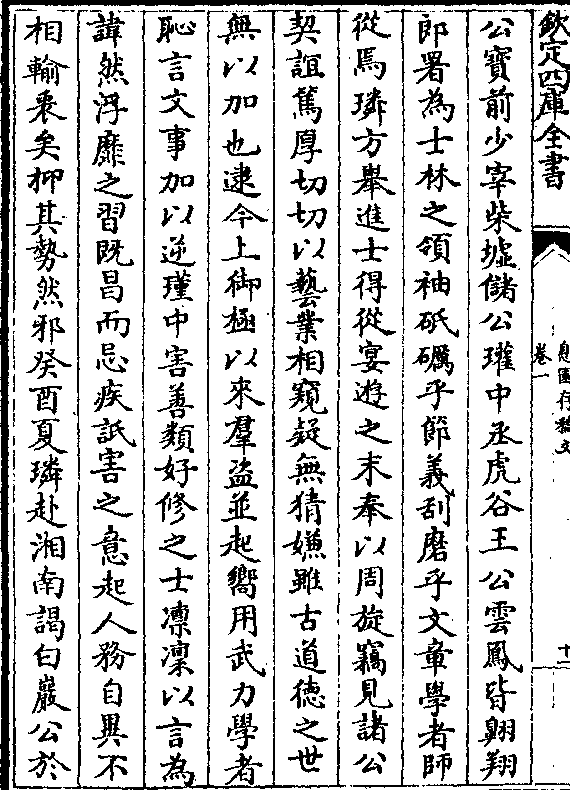 欽定四庫全書
息園存稿文
卷一
十二
公寳前少宰柴墟儲公瓘中丞虎谷王公雲鳳皆翺翔
郎署為士林之領袖砥礪乎節義刮磨乎文章學者師
從焉璘方舉進士得從宴遊之末奉以周旋竊見諸公
契誼篤厚切切以藝業相窺疑無猜嫌雖古道德之世
無以加也逮今上御極以來羣盜並起嚮用武力學者
恥言文事加以逆瑾中害善類好修之士凛凛以言為
諱然浮靡之習既昌而忌疾訿害之意起人務自異不
相輸衷矣抑其勢然邪癸酉夏璘赴湘南謁白巖公於